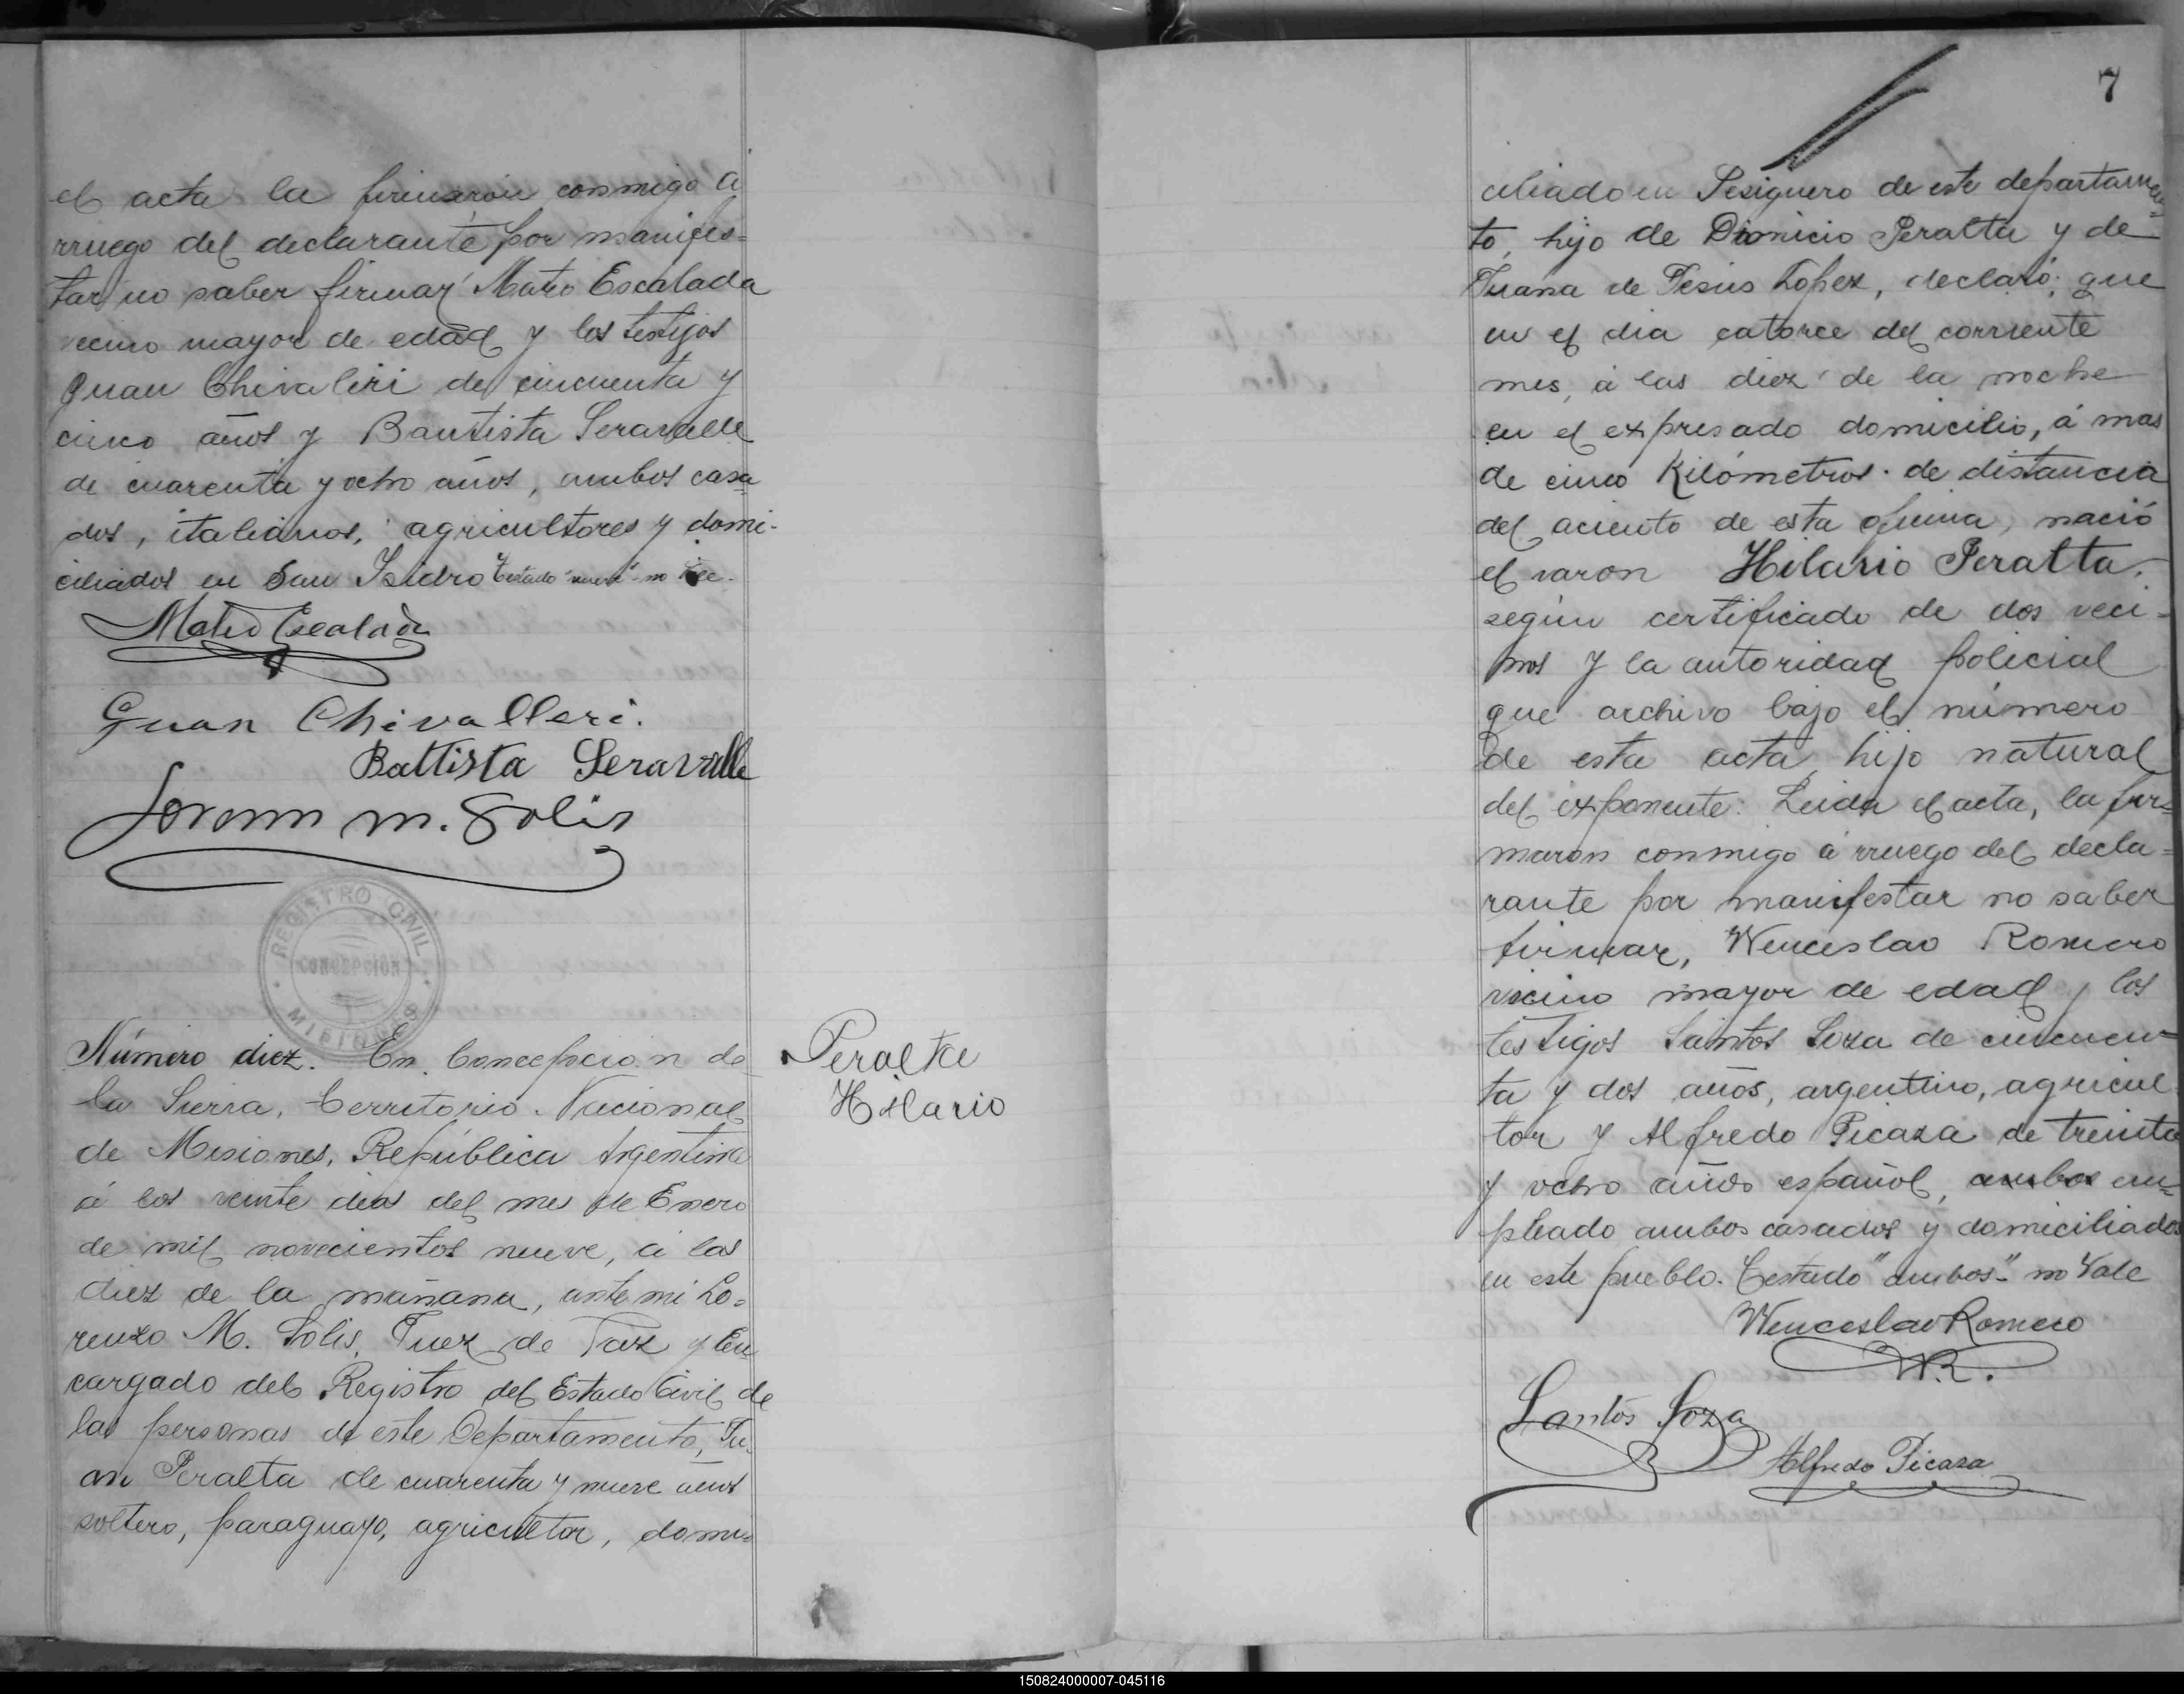 el acta la firmaron conmigo a
rruego del declarante por manifes=
tar no saber firmar Mateo Escalada
vecino mayor de edad y los testijos
Juan Chivaliri de cincuenta y
cinco años y Bautista Seravalle
de cuarenta y ocho años, ambos casa
dos, italianos, agricultores y domi-
ciliados en San Isidro testado no vale.
Mateo Escalada
Guan Chivalleri.
Battista Seravalle
Lorenzo M. Solis
REGISTRO CIVIL
CONCEPCION
MISIONES
Número diez. En Concepcion de
la Sierra, Territorio Nacional
de Misiones, República Argentina
á los veinte dias del mes de Enero
de mil novecientos nueve, á las
diez de la mañana, ante mi Lo=
renzo M. Solis, Juez de Paz y En
cargado del Registro del Estado Civil de
las personas de este Departamento, Ju-
an Peralta de cuarenta y nueve años
soltero, paraguayo, agricultor, domi=
Peralta
Hilario
7
ciliado en Persiguero de este departamen=
to, hijo de Dionicio Peralta y de
Juana de Jesús López, declaró; que
en el dia catorce del corriente
mes, á las diez de la noche
en el expresado domicilio, á mas
de cinco Kilómetros de distancia
del aciento de esta oficina, nació
el varon Hilario Peralta.
según certificado de dos veci=
nos y la autoridad policial
que archivo bajo el número
de esta acta, hijo natural
del exponente: Leida el acta, la fir=
maron conmigo á rruego del decla=
rante por manifestar no saber
firmar, Wenceslao Romero
vecino mayor de edad y los
testigos Santos Soza de cincuen=
ta y dos años, argentino, agricul
tor y Alfredo Picaza de treinta
y ocho años español, ambos em=
pleado ambos casados y domiciliados
en este pueblo. Testado "ambos" no Vale
Wenceslao Romero
W.R.
Santos Soza
Alfredo Picaza
150824000007-045116